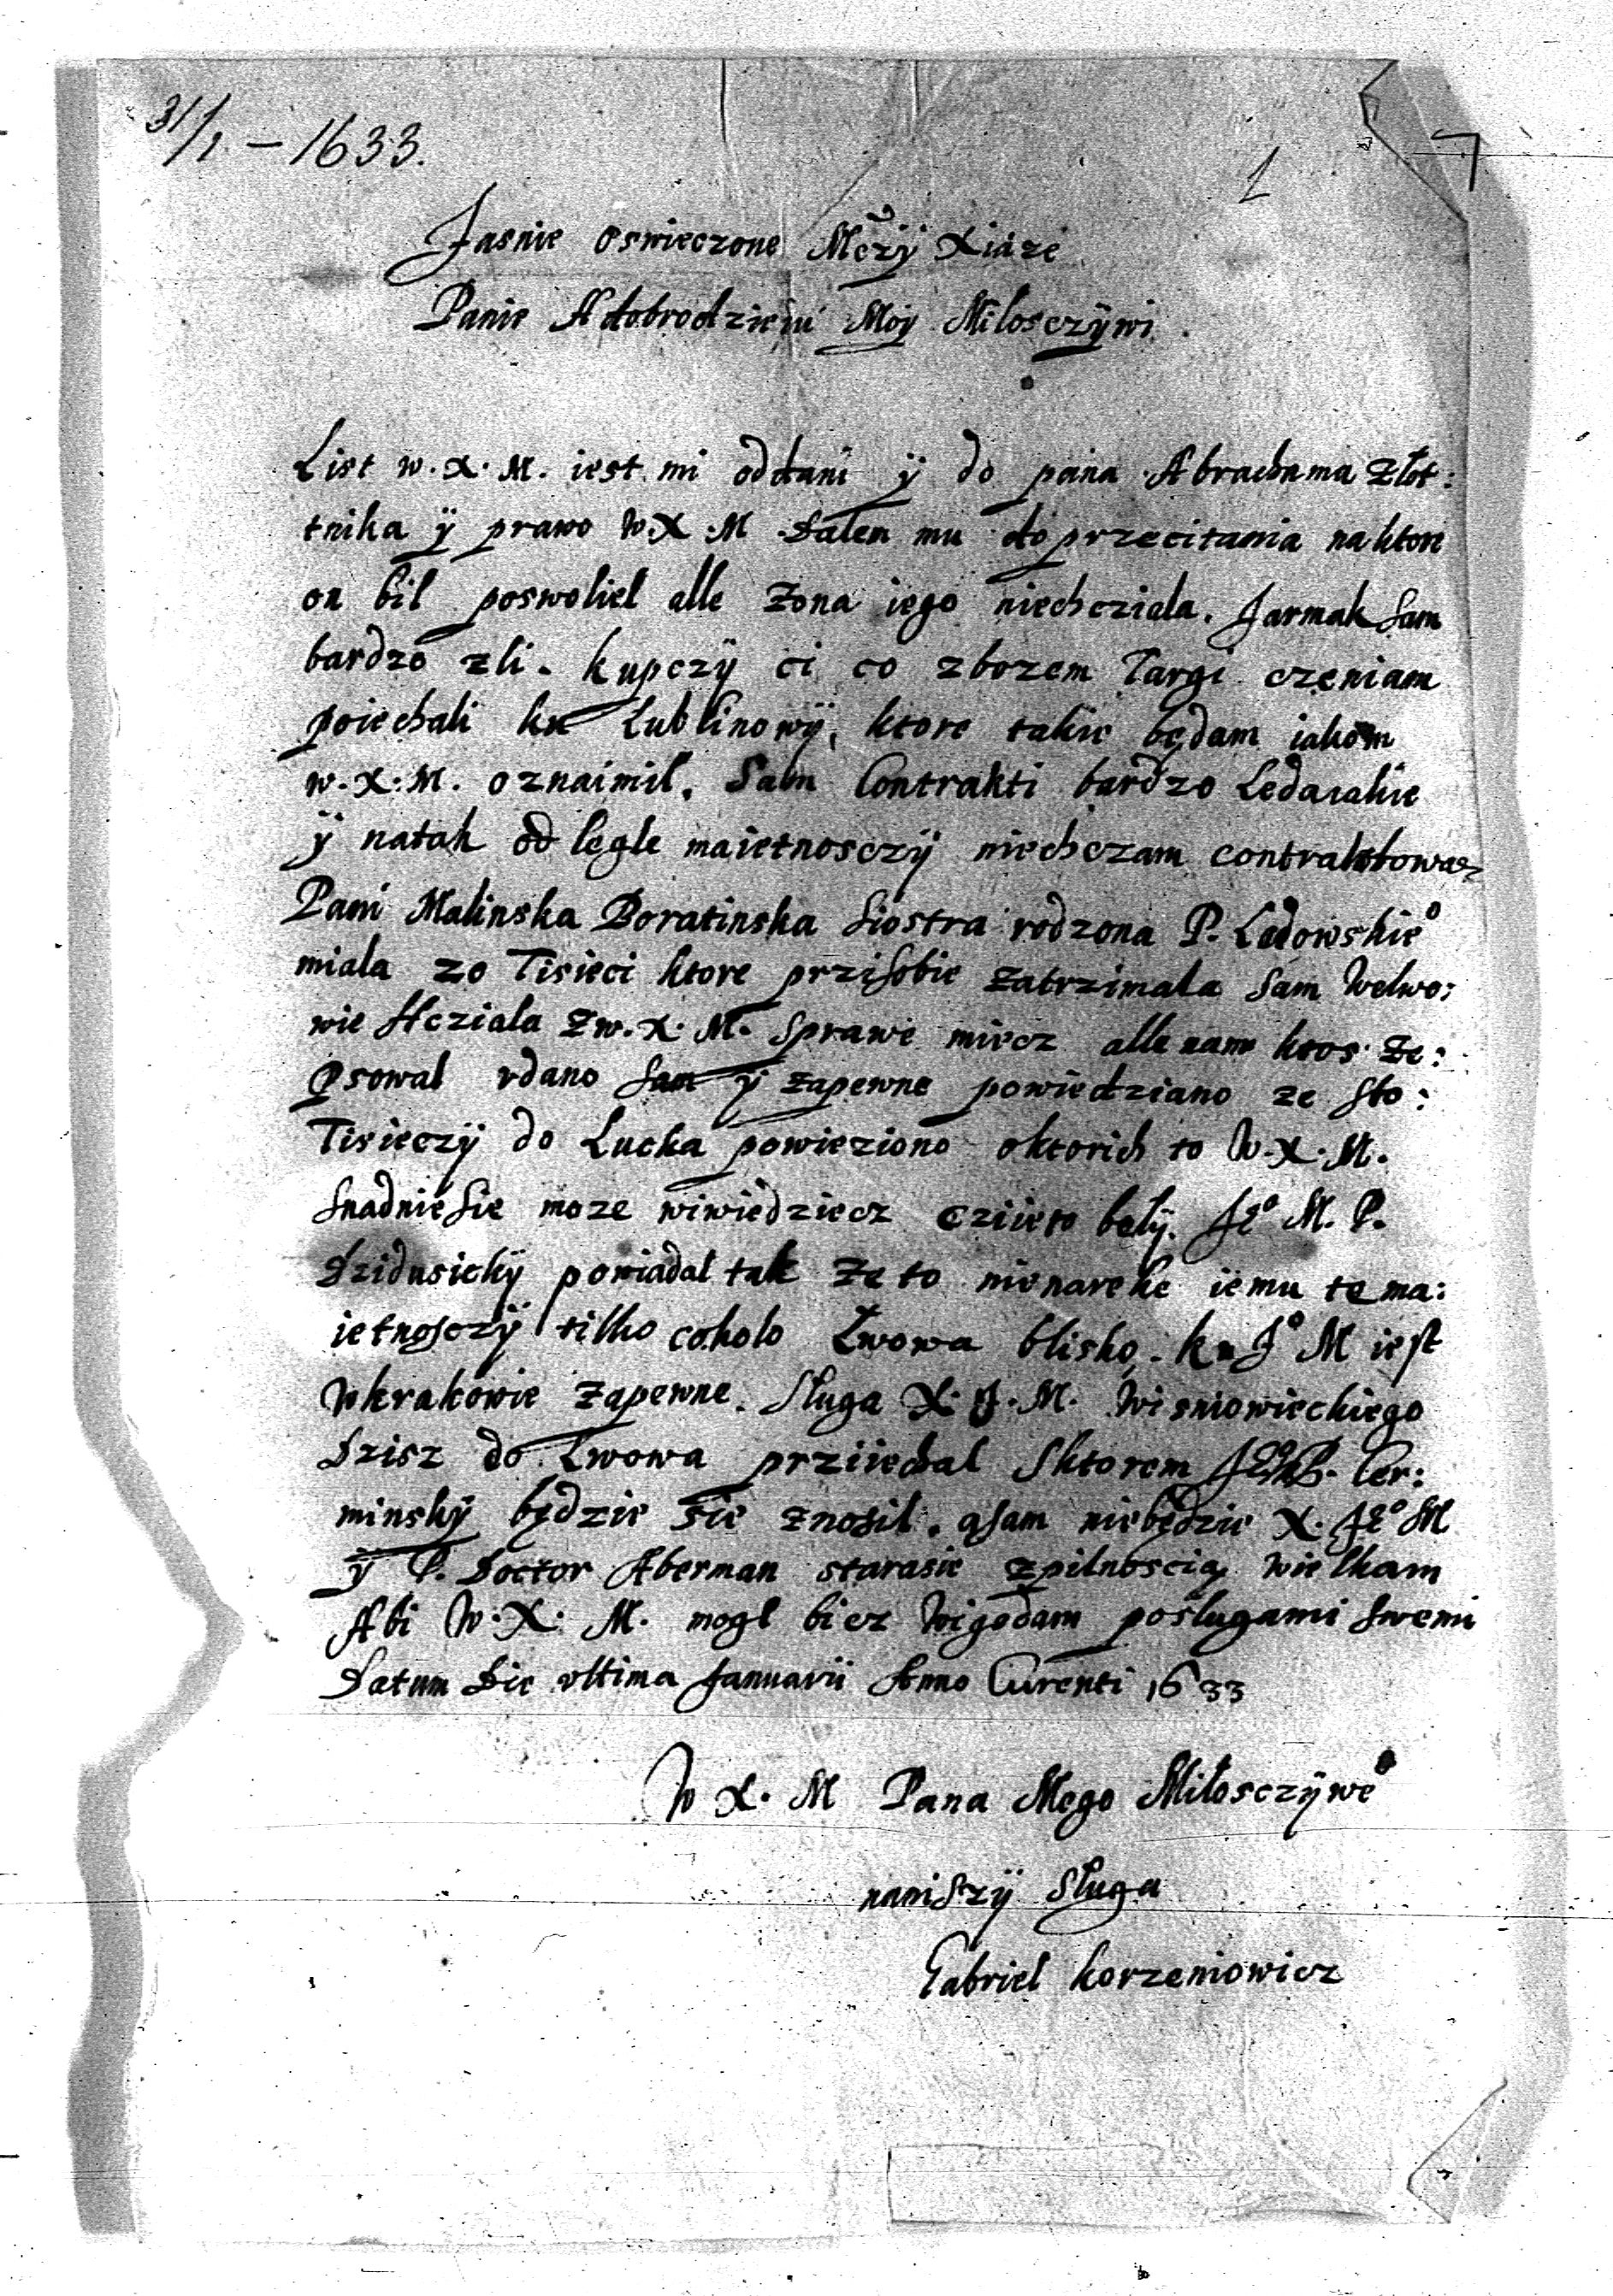 31/1 – 1633.
1
7
Jasnie Oswieczone Mczÿ Xiąze
Panie A dobrodzieiu Moy Milosczÿwi.
List w. X. M. iest mi oddani ÿ do pana Abrachama Złot:
tnika ÿ prawo W. X. M. Dalem mu do przecitania na ktore
on bil poswoliel alle Zona iego niechciala. Jarmak Sam
bardzo zli. kupczÿ ci co zbozem Targi czeniam
poiechali ku Lublinowÿ, ktore takie będam iakom
w. X. M. oznaimil. Sam Contrakti bardzo Ledaiakie
ÿ natak od legle maietnosczÿ niechczam contraktowacz
Pani Malinska Boratinska Siostra rodzona P. Ledowskieo
miala 20 Tisieci ktore przisobie zatrzimala Sam Welwo:
wie Hciala Zw. X. M. Sprawe miecz alle nam ktos ze:
psowal vdano Sam ÿ zapewne powiedziano ze Sto:
Tisieczÿ do Lucka powieziono oktorich to W. X. M.
Snadnie Sie moze wiwiedziecz cziieto belÿ. JEo M. P.
Dzidusickÿ powiadal tak ze to nienareke iemu te ma:
ietnosczÿ tilko cokolo Lwowa blisko. ku Jo M iest
Wkrakowie Zapewne. Sluga X. J. M. Wisniowieckiego
Dzisz do Lwowa przÿiechal Sktorem Cer:
minskÿ będzie sie znosil. asam niebędzie X. JEo M
ÿ P. Doctor Aberman starasie zpilnoscią wielkam
Abi W. X. M. mogl bicz Wigodam poslugami Swemi
Datum Die vltima Januarii Anno Curenti 1633
W X. M Pana Mego Miłosczÿweo
naniszÿ Sluga
Gabriel korzeniowicz